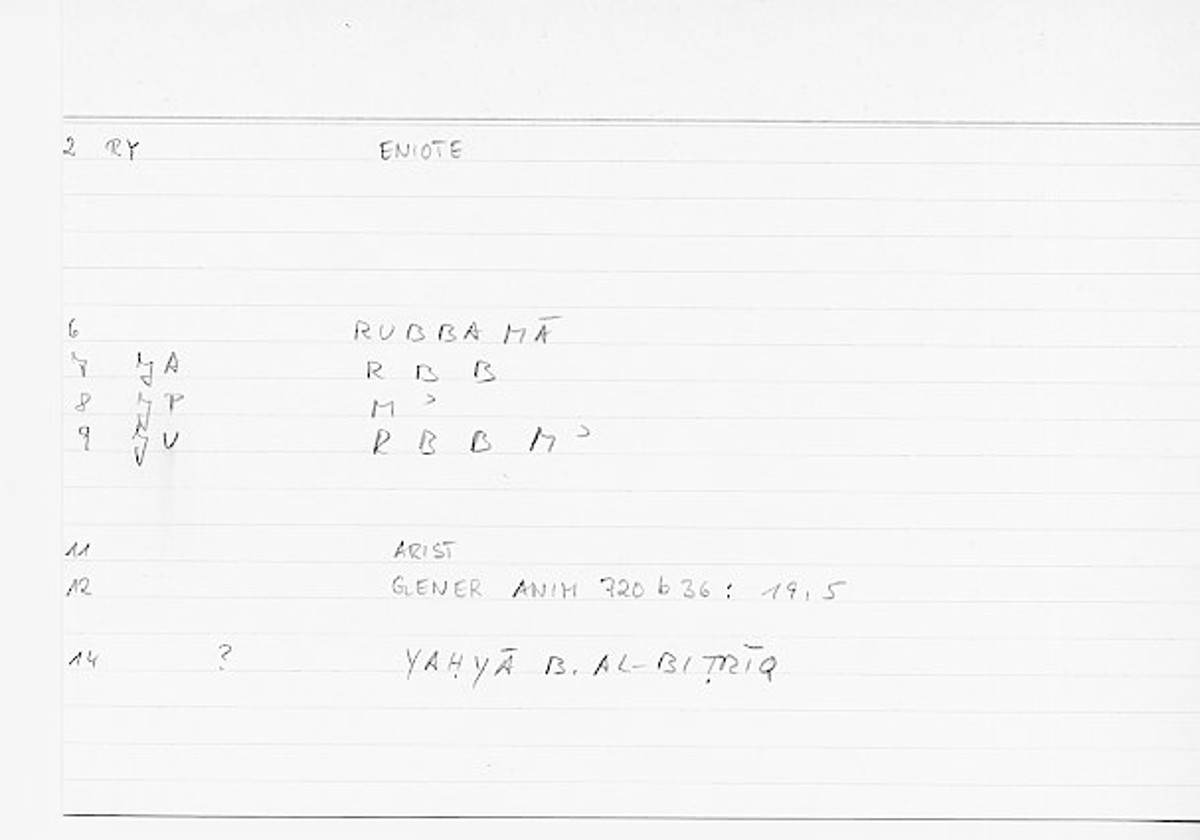 2 RY ENIOTE
6 RUBBA MĀ
7 A R B B
8 P M ʾ
9 V R B B M ʾ
11 ARIST
12 GENER ANIM 720 b 36 : 19, 5
14 ? YAḤYĀ B. AL-BIṬRĪQ